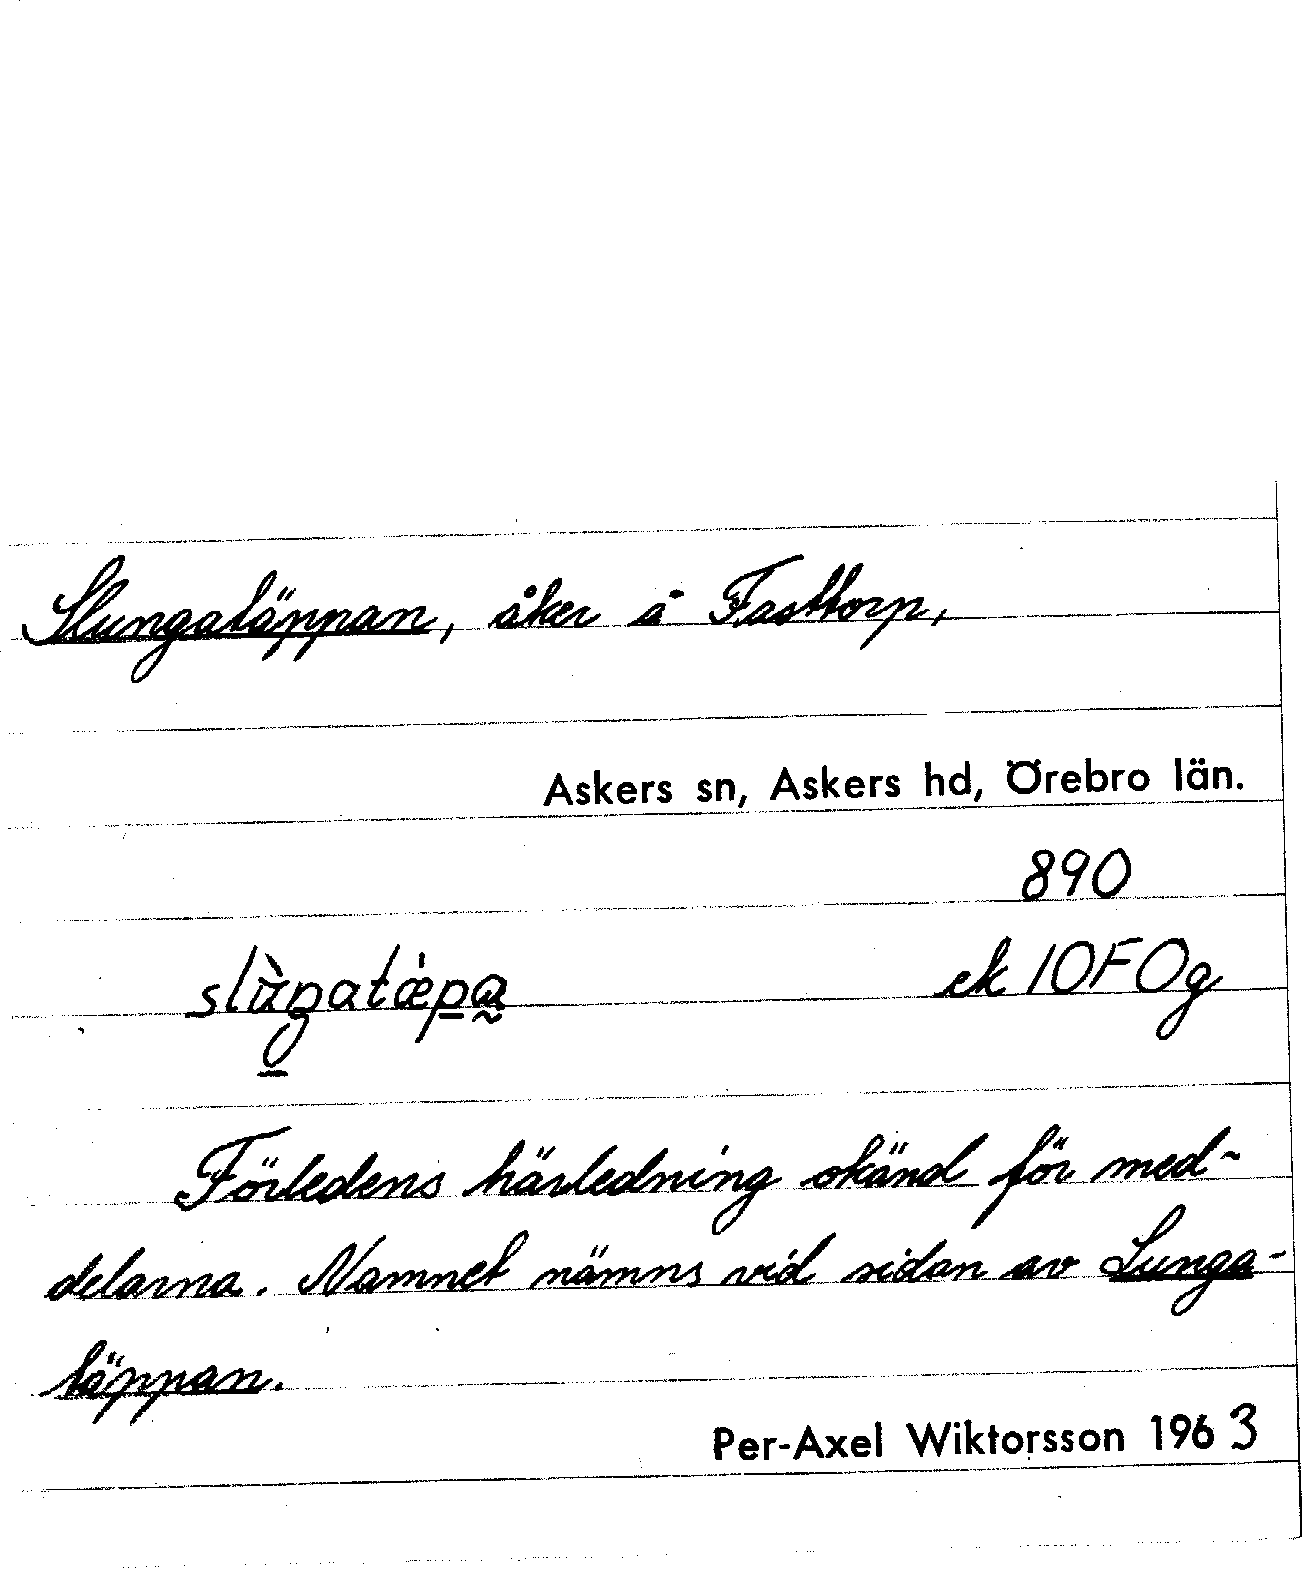 Slungatäppan, åker å Fasttorp,
Askers sn, Askers hd, Örebro län.
890
slùŋatǽpa ek 10F0g
Förledens härledning okänd för med-
delarna. Namnet nämns vid sidan av Lunga-
täppan.
Per-Axel Wiktorsson 1963